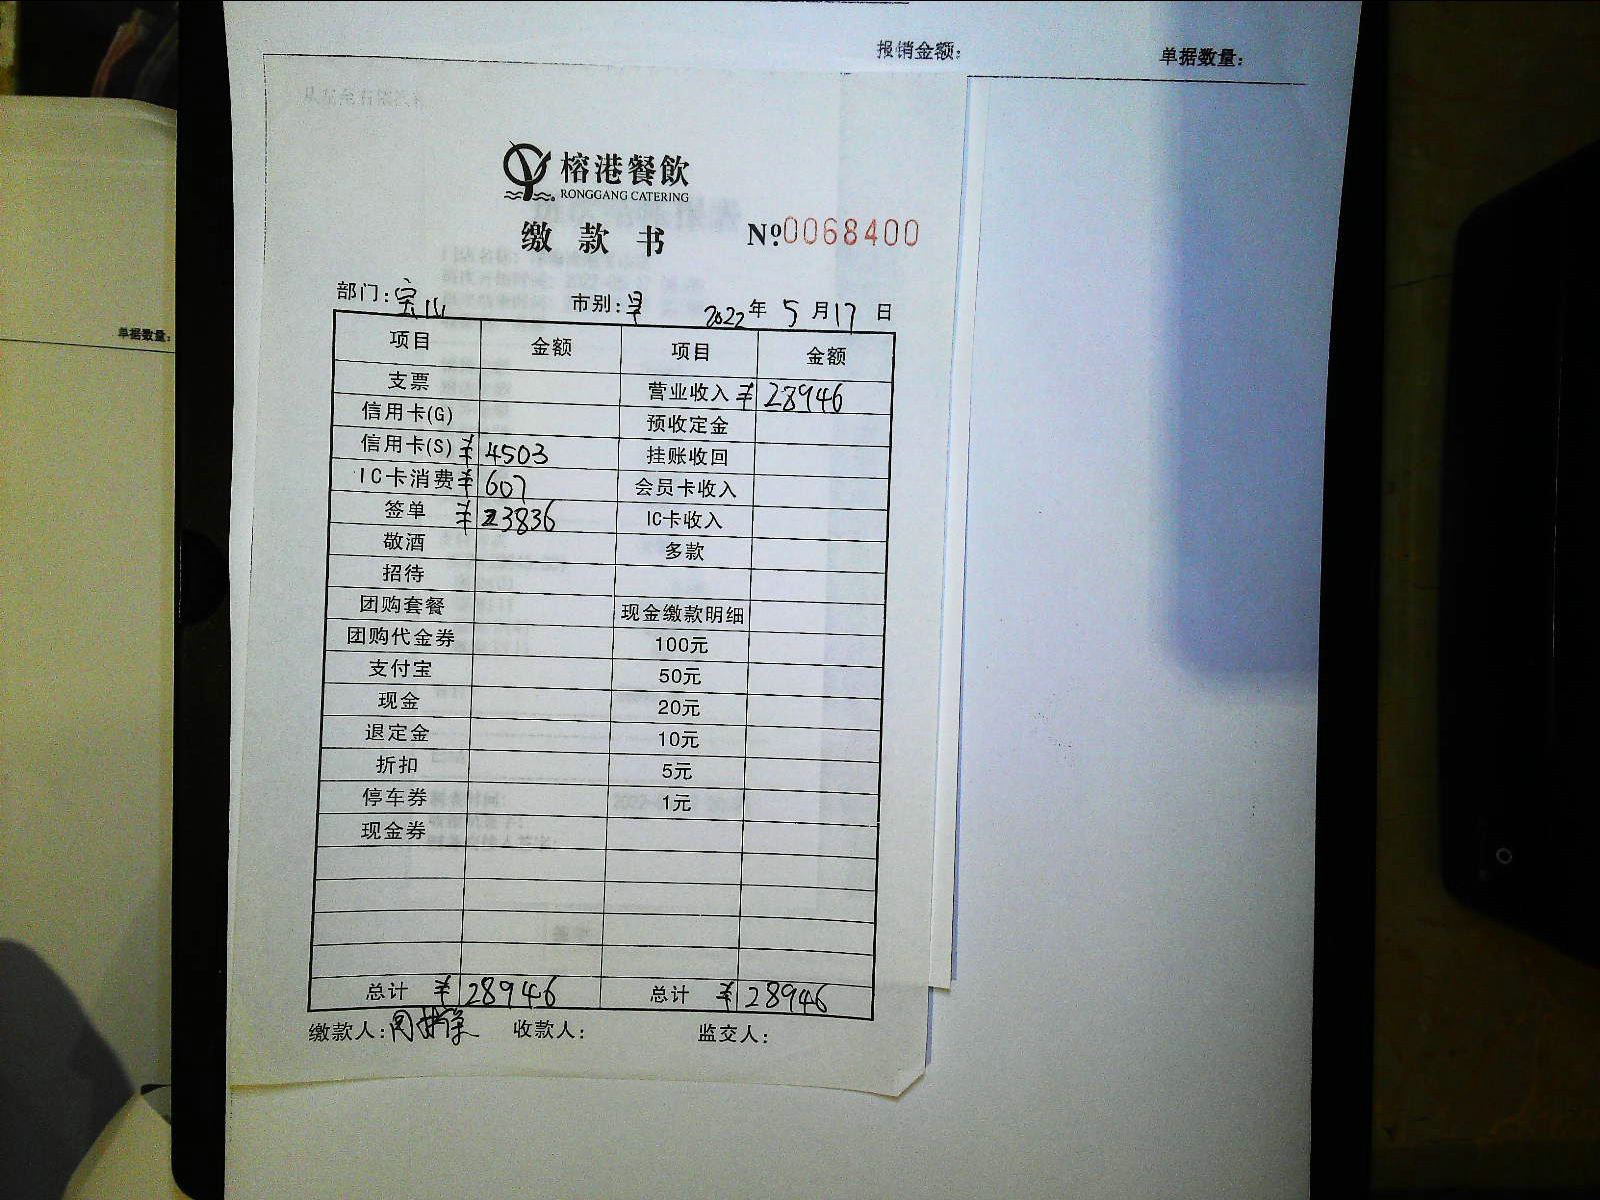 报销金额： 单据数量：
单据数量：
榕港餐飲
RONGGANG CATERING
缴款书 №0068400
部门：宝山 市别：早 2022年5月17日
项目 金额 项目 金额
支票 营业收入 ¥28946
信用卡(G) 预收定金
信用卡(S) ¥4503 挂账收回
IC卡消费 ¥607 会员卡收入
签单 ¥23836 IC卡收入
敬酒 多款
招待
团购套餐 现金缴款明细
团购代金券 100元
支付宝 50元
现金 20元
退定金 10元
折扣 5元
停车券 1元
现金券
总计 ¥28946 总计 ¥28946
缴款人： 收款人： 监交人：